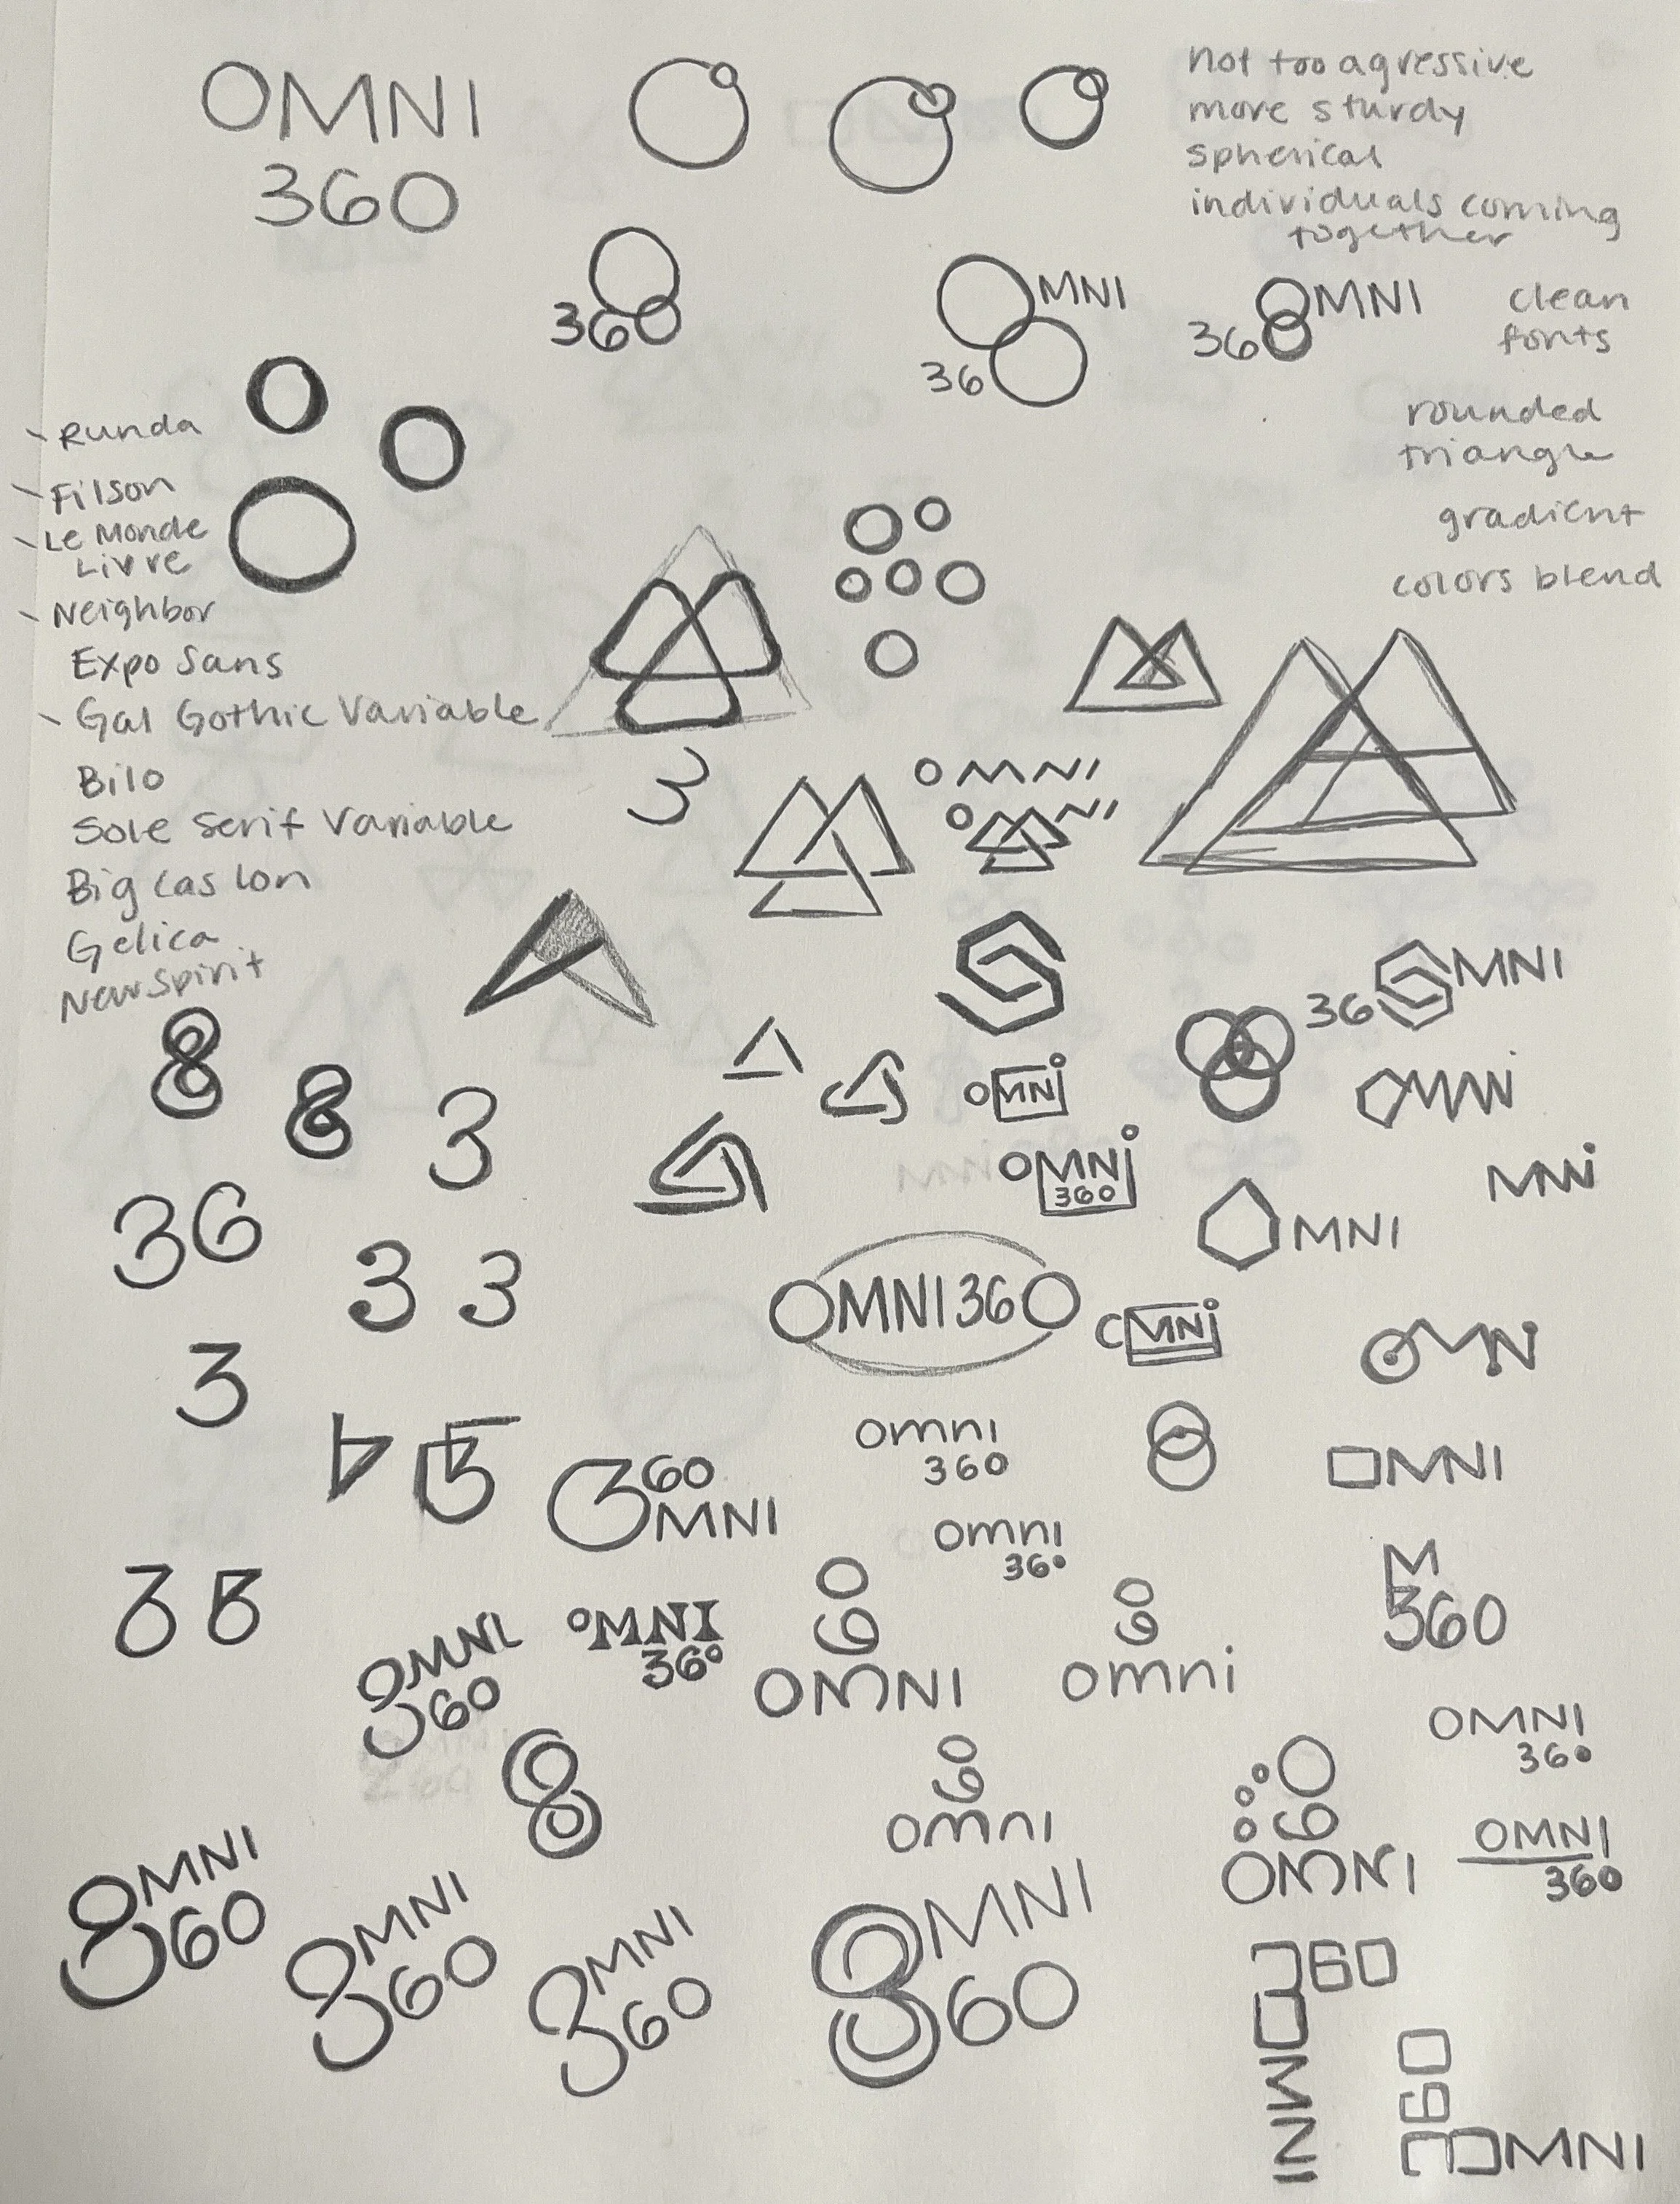 OMNI
360
not too agressive
more sturdy
spherical
individuals coming
together
360
MNI
36
MNI
36
clean
fonts
rounded
triangle
gradient
colors blend
- Runda
- Filson
- Le Monde
Livre
- Neighbor
Expo Sans
- Gal Gothic Variable
Bilo
Sole Serif Variable
Big Caslon
Gelica
New Spirit
3
OMNI
OMNI
MNI
36
8
8
3
OMNi
OMNi
OMNi
360
MNi
OMNI
36
3 3
OMNI360
OMNi
OMNi
3
omni
360
OMNI
3
60
MNI
omni
36o
M
360
3 3
OMNI
360
OMNI
36o
60
OMNI
60
omni
OMNI
36o
8
60
omni
60
OMNI
OMNI
360
OMNI
360
OMNI
360
OMNI
360
OMNI
360
360
OMNI
360
OMNI